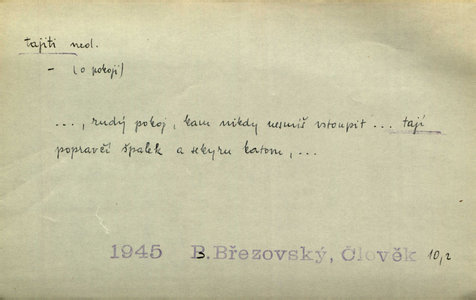 tajiti ned.
– (o pokoji)
..., rudý pokoj, kam nikdy nesmíš vstoupit ... tají
popravčí špalek a sekyru katovu, ...
1945 B. Březovský, Člověk 10,2